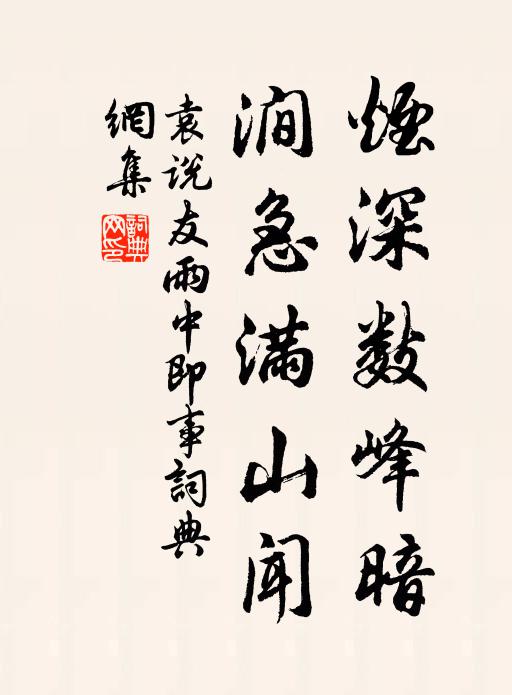 煙深数峰暗
澗急满山闻
袁说友雨中即事詞典
網集
詞典
网印